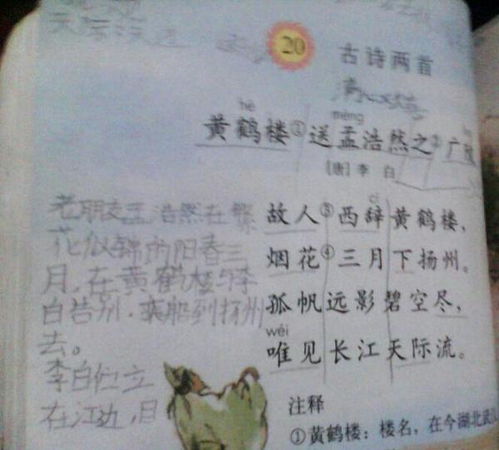 20 古诗两首
hè mèng
黄鹤楼①送孟浩然之②广
[唐]李 白
cí
故人③西辞黄鹤楼，
烟花④三月下扬州。
孤帆远影碧空尽，
wéi
唯见长江天际流。
老朋友孟浩然在繁
花似锦的阳春三
月，在黄鹤楼与李
白告别，乘船到扬州
去。
李白伫立
在江边，目
注释
①黄鹤楼：楼名，在今湖北武